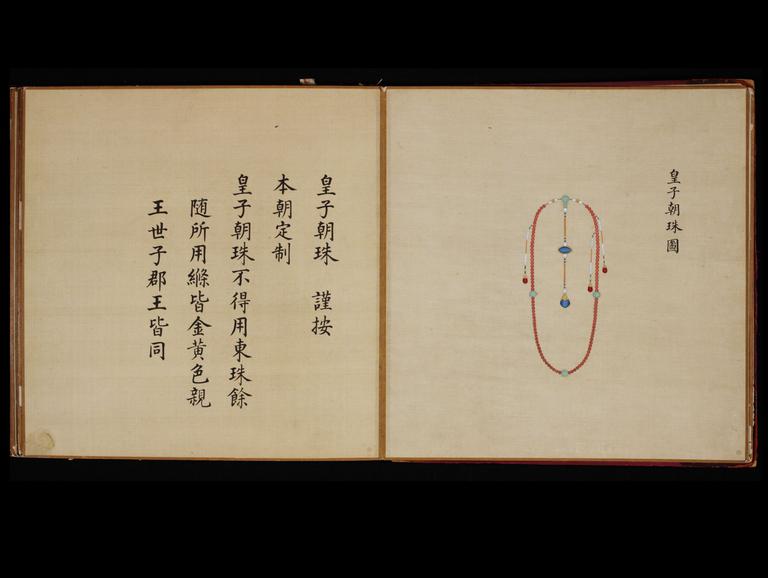 皇子朝珠圖
皇子朝珠　謹按
本朝定制
皇子朝珠不得用東珠餘
随所用縧皆金黄色親
王世子郡王皆同